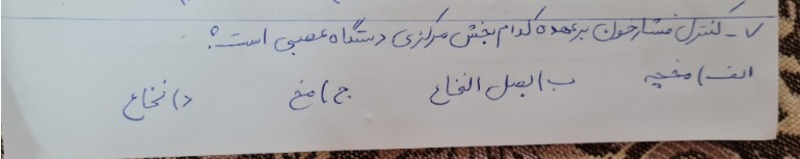 ۷- کنترل فشارخون برعهده کدام بخش مرکزی دستگاه عصبی است؟
الف) مخچه ب) بصل النخاع ج) مخ د) نخاع